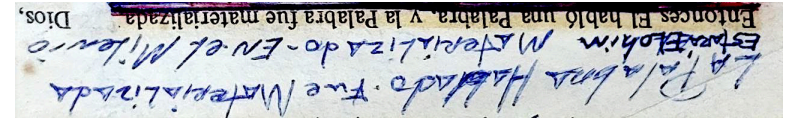 La Palabra Hablado. Fue Materializada
Estara Elohim Materializado-EN-el Milenio
Entonces El habló una Palabra, y la Palabra fue materializada. Dios,